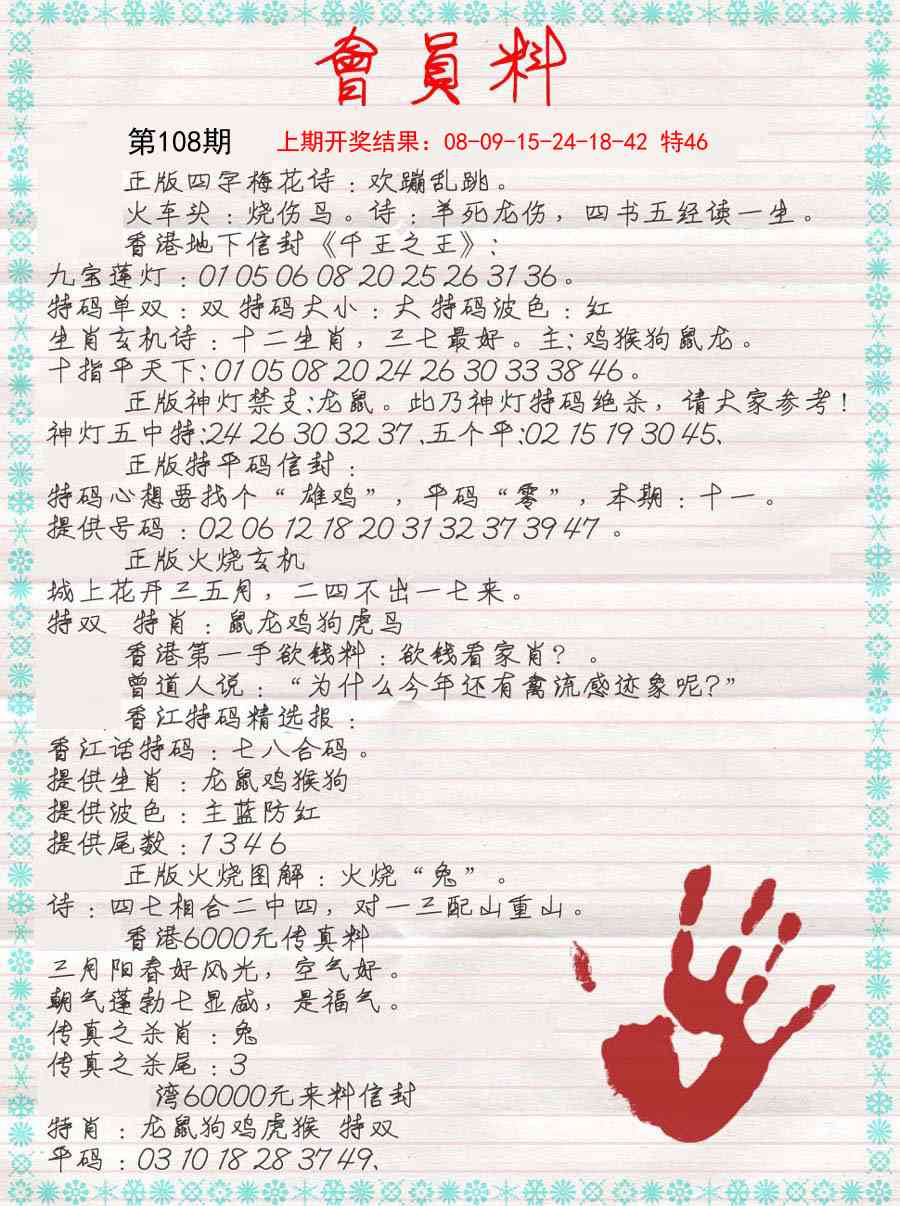 會員料
第108期 上期开奖结果：08-09-15-24-18-42 特46
正版四字梅花诗：欢蹦乱跳。
火车头：烧伤鸟。诗：羊死龙伤，四书五经读一生。
香港地下信封《千王之王》：
九宝莲灯：01 05 06 08 20 25 26 31 36。
特码单双：双 特码大小：大 特码波色：红
生肖玄机诗：十二生肖，三七最好。主：鸡猴狗鼠龙。
十指平天下：01 05 08 20 24 26 30 33 38 46。
正版神灯禁支：龙鼠。此乃神灯特码绝杀，请大家参考！
神灯五中特：24 26 30 32 37、五个平：02 15 19 30 45、
正版特平码信封：
特码心想要找个“雄鸡”，平码“零”，本期：十一。
提供号码：02 06 12 18 20 31 32 37 39 47。
正版火烧玄机
城上花开三五月，二四不出一七来。
特双 特肖：鼠龙鸡狗虎鸟
香港第一手欲钱料：欲钱看家肖？。
曾道人说：“为什么今年还有禽流感迹象呢？”
香江特码精选报：
香江话特码：七八合码。
提供生肖：龙鼠鸡猴狗
提供波色：主蓝防红
提供尾数：1 3 4 6
正版火烧图解：火烧“兔”。
诗：四七相合二中四，对一三配山重山。
香港6000元传真料
三月阳春好风光，空气好。
朝气蓬勃七显威，是福气。
传真之杀肖：兔
传真之杀尾：3
湾60000元来料信封
特肖：龙鼠狗鸡虎猴 特双
平码：03 10 18 28 37 49、